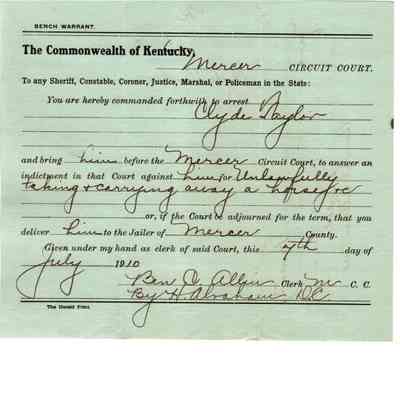 BENCH WARRANT.
The Commonwealth of Kentucky,
Mercer CIRCUIT COURT.
To any Sheriff, Constable, Coroner, Justice, Marshal, or Policeman in the State:
You are hereby commanded forthwith to arrest
Clyde Taylor
and bring him before the Mercer Circuit Court, to answer an
indictment in that Court against him for Unlawfully
taking & carrying away a horse &c
or, if the Court be adjourned for the term, that you
deliver him to the Jailer of Mercer County.
Given under my hand as clerk of said Court, this 7th day of
July 1910
Ben C. Allin Clerk M C. C.
By H. Abraham D.C.
The Herald Print.